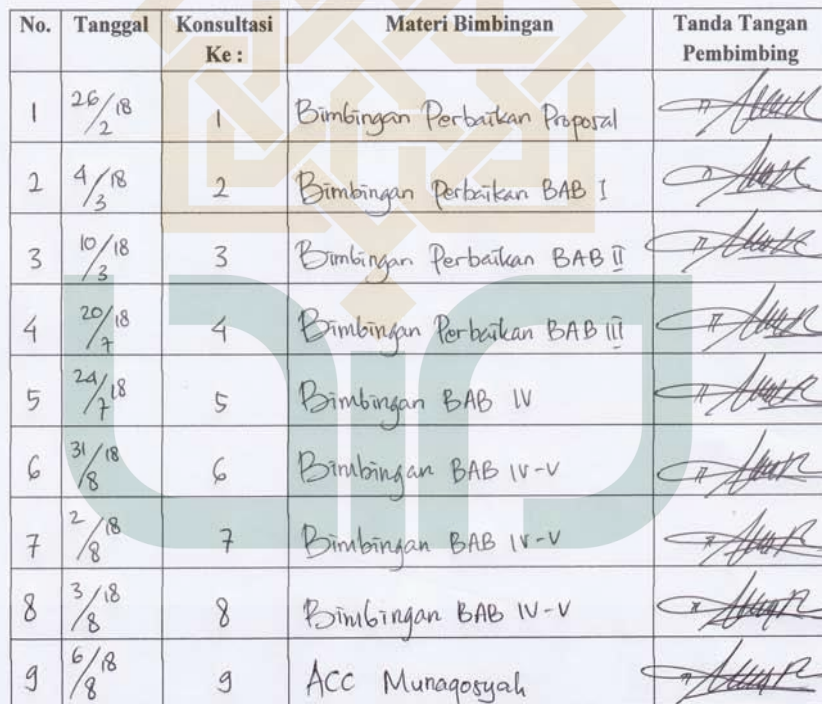 No. Tanggal Konsultasi Ke : Materi Bimbingan Tanda Tangan Pembimbing
1 26/2 18 1 Bimbingan Perbaikan Proposal
2 4/3 18 2 Bimbingan Perbaikan BAB I
3 10/3 18 3 Bimbingan Perbaikan BAB II
4 20/7 18 4 Bimbingan Perbaikan BAB III
5 24/7 18 5 Bimbingan BAB IV
6 31/8 18 6 Bimbingan BAB IV-V
7 2/8 18 7 Bimbingan BAB IV-V
8 3/8 18 8 Bimbingan BAB IV-V
9 6/8 18 9 ACC Munaqosyah